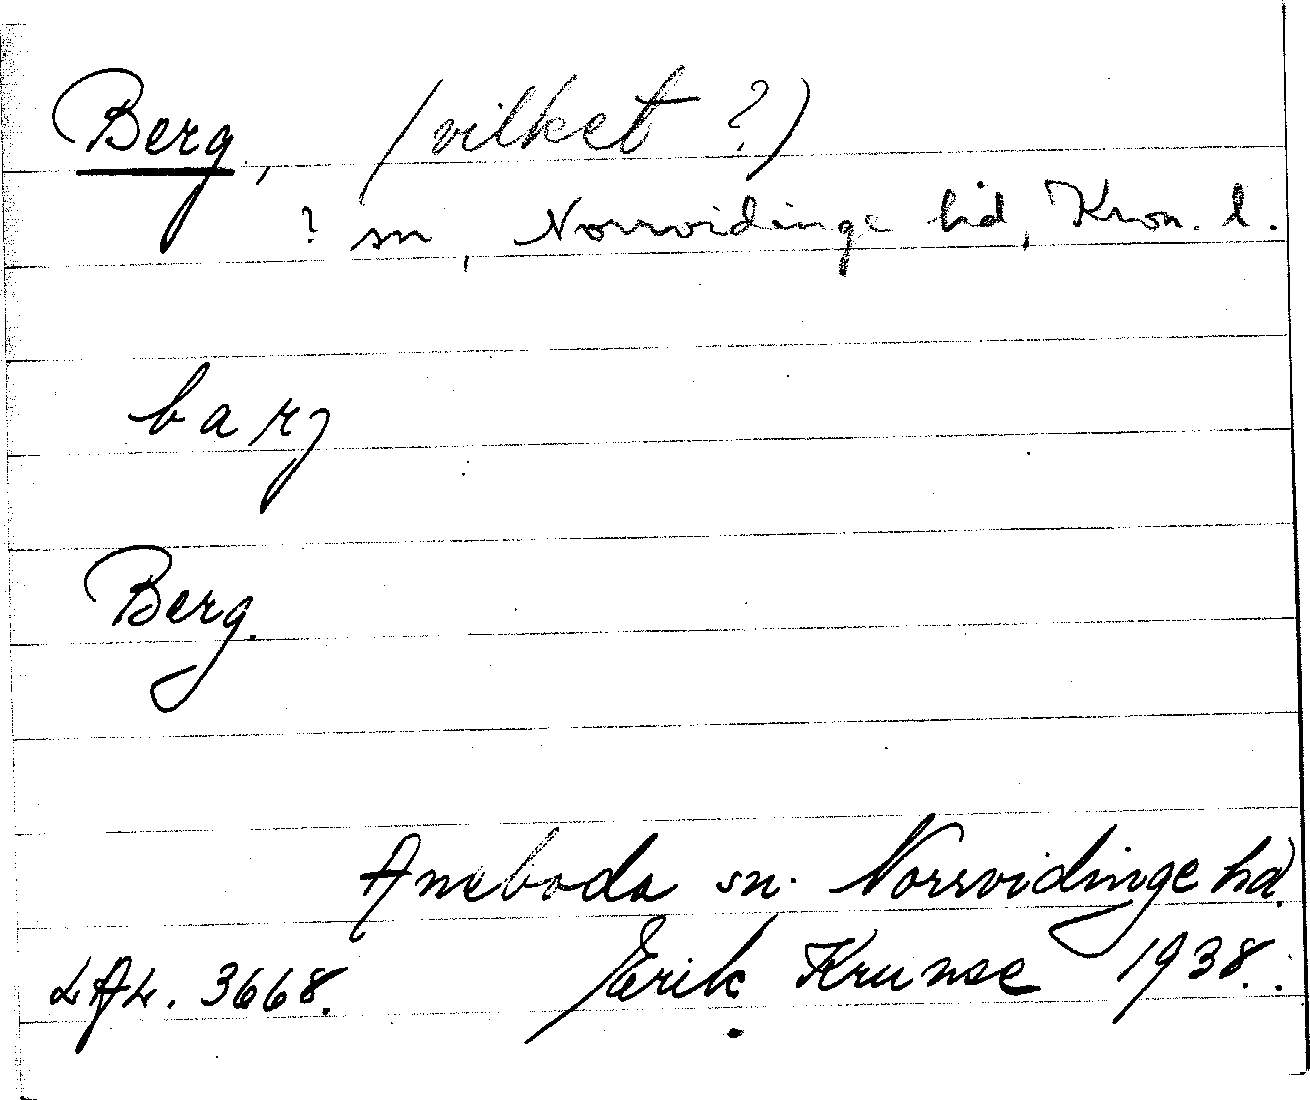 Berg, (vilket ?)
? sn, Norrvidinge hd, Kron. l.
barj
Berg.
Aneboda sn. Norrvidinge hd.
LAL. 3668. Erik Krunse 1938.